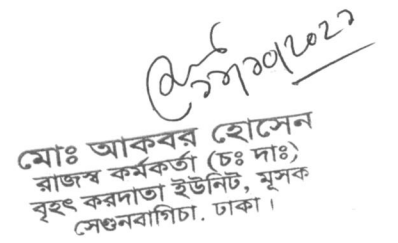 ২৭/১০/২০২২
মোঃ আকবর হোসেন
রাজস্ব কর্মকর্তা (চঃ দাঃ)
বৃহৎ করদাতা ইউনিট, মূসক
সেগুনবাগিচা. ঢাকা।